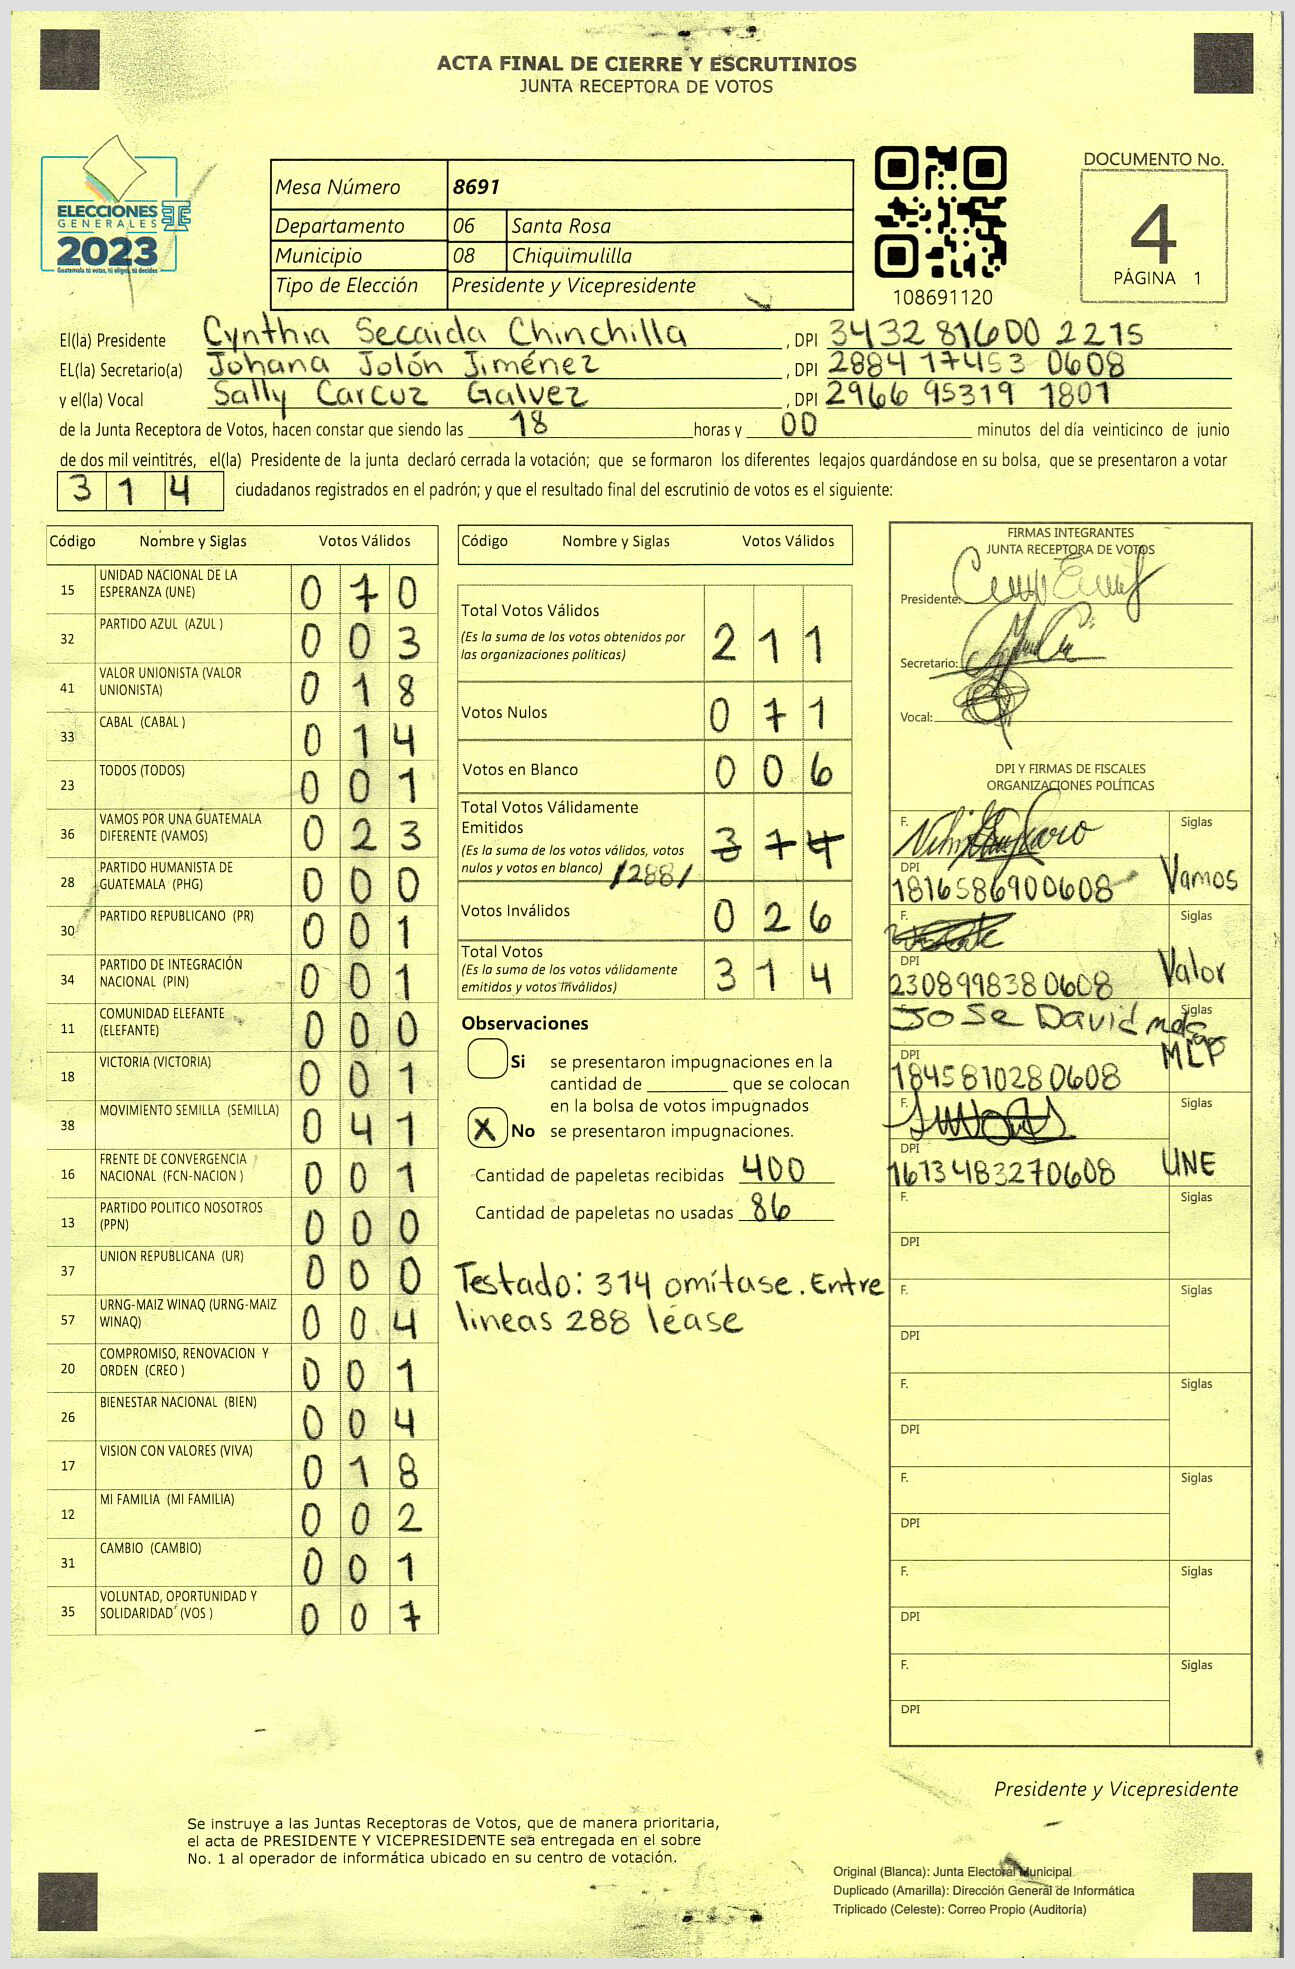 ACTA FINAL DE CIERRE Y ESCRUTINIOS
JUNTA RECEPTORA DE VOTOS
ELECCIONES
GENERALES
2023
Guatemala tú votas, tú eliges, tú decides
Mesa Número 8691
Departamento 06 Santa Rosa
Municipio 08 Chiquimulilla
Tipo de Elección Presidente y Vicepresidente
108691120
DOCUMENTO No.
4
PÁGINA 1
El(la) Presidente Cynthia Secaida Chinchilla , DPI 3432 81600 2215
EL(la) Secretario(a) Johana Jolón Jiménez , DPI 2884 17453 0608
y el(la) Vocal Sally Carcuz Galvez , DPI 2966 95319 1801
de la Junta Receptora de Votos, hacen constar que siendo las 18 horas y 00 minutos del día veinticinco de junio
de dos mil veintitrés, el(la) Presidente de la junta declaró cerrada la votación; que se formaron los diferentes legajos guardándose en su bolsa, que se presentaron a votar
314 ciudadanos registrados en el padrón; y que el resultado final del escrutinio de votos es el siguiente:
Código Nombre y Siglas Votos Válidos
15 UNIDAD NACIONAL DE LA ESPERANZA (UNE) 0 7 0
32 PARTIDO AZUL (AZUL ) 0 0 3
41 VALOR UNIONISTA (VALOR UNIONISTA) 0 1 8
33 CABAL (CABAL ) 0 1 4
23 TODOS (TODOS) 0 0 1
36 VAMOS POR UNA GUATEMALA DIFERENTE (VAMOS) 0 2 3
28 PARTIDO HUMANISTA DE GUATEMALA (PHG) 0 0 0
30 PARTIDO REPUBLICANO (PR) 0 0 1
34 PARTIDO DE INTEGRACIÓN NACIONAL (PIN) 0 0 1
11 COMUNIDAD ELEFANTE (ELEFANTE) 0 0 0
18 VICTORIA (VICTORIA) 0 0 1
38 MOVIMIENTO SEMILLA (SEMILLA) 0 4 1
16 FRENTE DE CONVERGENCIA NACIONAL (FCN-NACION ) 0 0 1
13 PARTIDO POLITICO NOSOTROS (PPN) 0 0 0
37 UNION REPUBLICANA (UR) 0 0 0
57 URNG-MAIZ WINAQ (URNG-MAIZ WINAQ) 0 0 4
20 COMPROMISO, RENOVACION Y ORDEN (CREO ) 0 0 1
26 BIENESTAR NACIONAL (BIEN) 0 0 4
17 VISION CON VALORES (VIVA) 0 1 8
12 MI FAMILIA (MI FAMILIA) 0 0 2
31 CAMBIO (CAMBIO) 0 0 1
35 VOLUNTAD, OPORTUNIDAD Y SOLIDARIDAD (VOS ) 0 0 7
Código Nombre y Siglas Votos Válidos
Total Votos Válidos
(Es la suma de los votos obtenidos por
las organizaciones políticas) 2 1 1
Votos Nulos 0 7 1
Votos en Blanco 0 0 6
Total Votos Válidamente
Emitidos
(Es la suma de los votos válidos, votos
nulos y votos en blanco) /288/
Votos Inválidos 0 2 6
Total Votos
(Es la suma de los votos válidamente
emitidos y votos inválidos) 3 1 4
Observaciones
Si se presentaron impugnaciones en la
cantidad de ________ que se colocan
en la bolsa de votos impugnados
X No se presentaron impugnaciones.
Cantidad de papeletas recibidas 400
Cantidad de papeletas no usadas 86
Testado: 314 omítase. Entre
lineas 288 léase
FIRMAS INTEGRANTES
JUNTA RECEPTORA DE VOTOS
Presidente:
Secretario:
Vocal:
DPI Y FIRMAS DE FISCALES
ORGANIZACIONES POLÍTICAS
F. Siglas
DPI 1816586900608 Vamos
F. Siglas
DPI 2308998380608 Valor
Jose David Siglas
DPI 1845810280608 MLP
F. Siglas
DPI 1613483270608 UNE
F. Siglas
DPI
F. Siglas
DPI
F. Siglas
DPI
F. Siglas
DPI
F. Siglas
DPI
F. Siglas
DPI
Presidente y Vicepresidente
Se instruye a las Juntas Receptoras de Votos, que de manera prioritaria,
el acta de PRESIDENTE Y VICEPRESIDENTE sea entregada en el sobre
No. 1 al operador de informática ubicado en su centro de votación.
Original (Blanca): Junta Electoral Municipal
Duplicado (Amarilla): Dirección General de Informática
Triplicado (Celeste): Correo Propio (Auditoría)